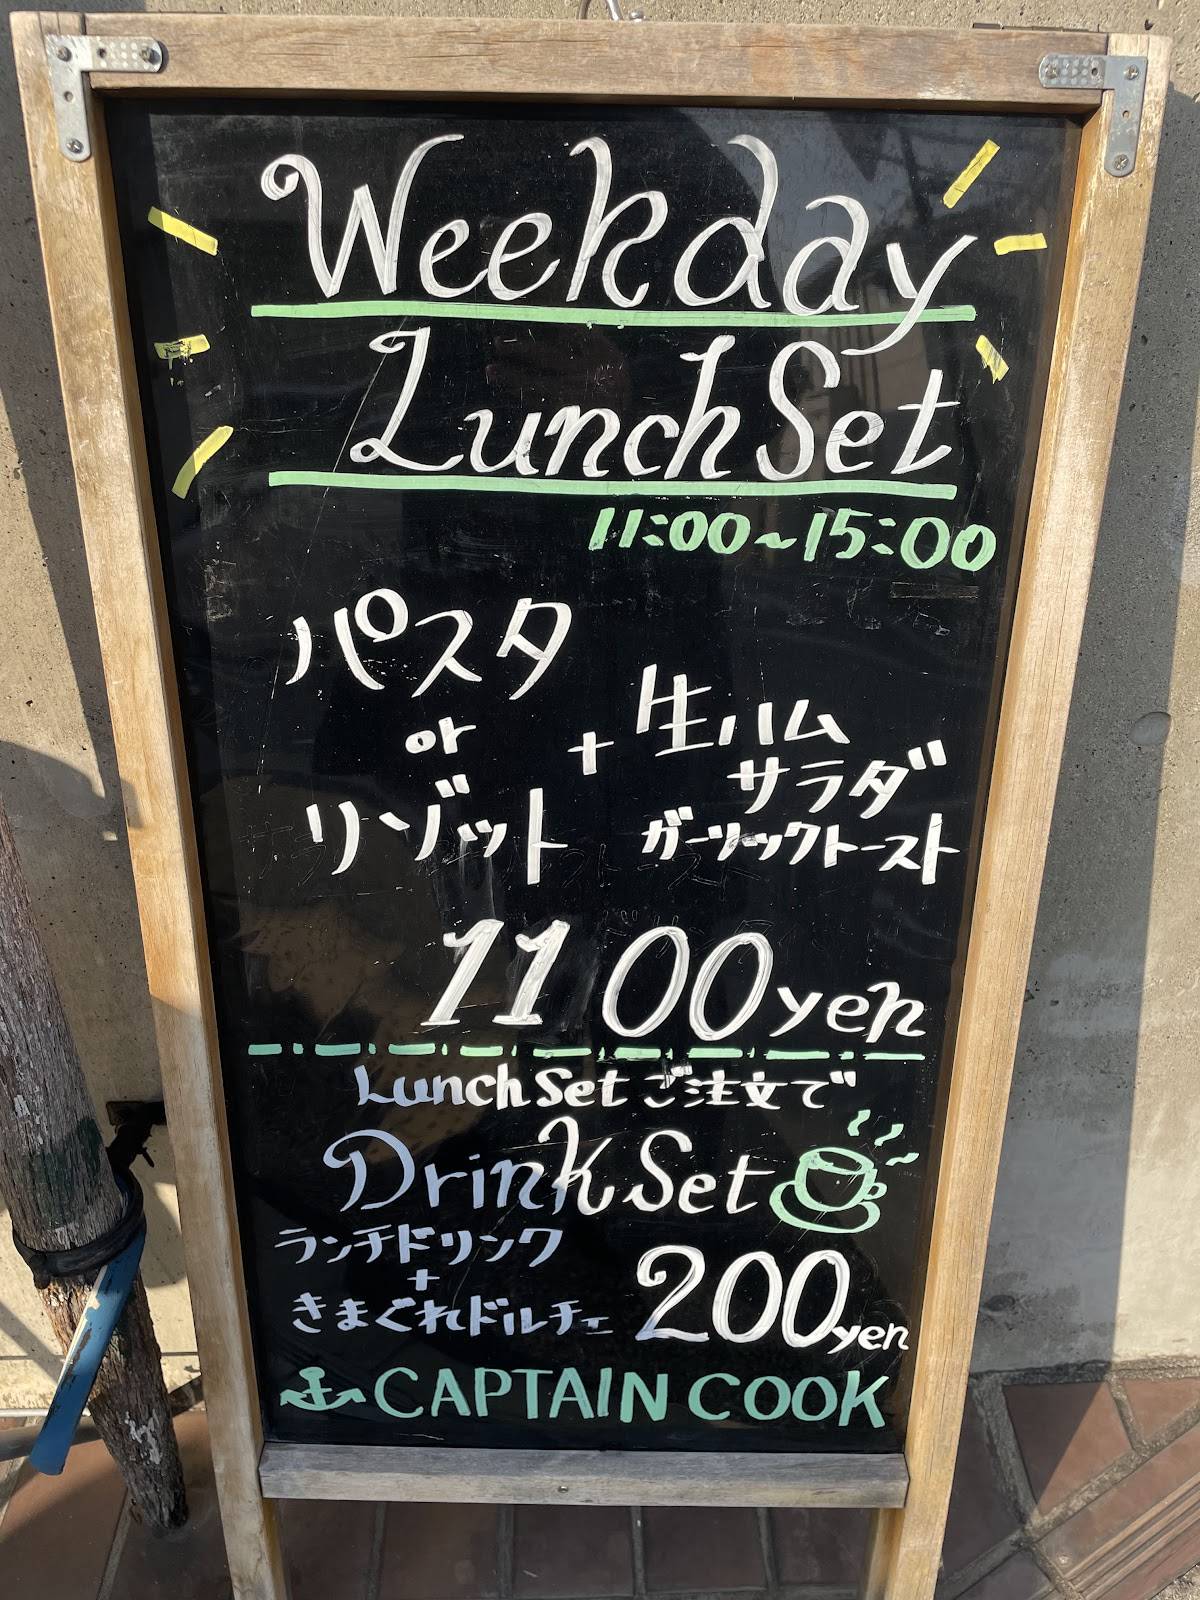 Weekday
Lunch Set
11:00~15:00
パスタ
or
リゾット
+
生ハム
サラダ
ガーリックトースト
1100yen
Lunch Set ご注文で
Drink Set
ランチドリンク
+
きまぐれドルチェ
200yen
CAPTAIN COOK